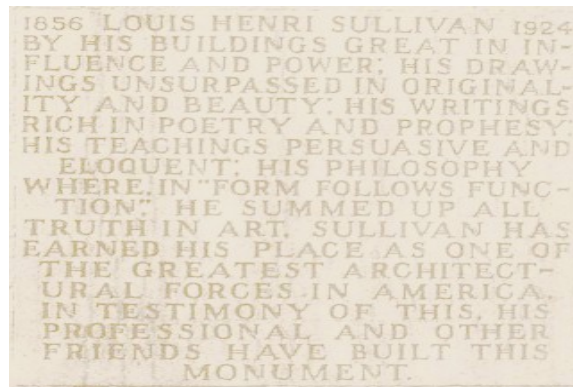 1856 LOUIS HENRI SULLIVAN 1924
BY HIS BUILDINGS GREAT IN IN-
FLUENCE AND POWER; HIS DRAW-
INGS UNSURPASSED IN ORIGINAL-
ITY AND BEAUTY; HIS WRITINGS
RICH IN POETRY AND PROPHESY;
HIS TEACHINGS PERSUASIVE AND
ELOQUENT; HIS PHILOSOPHY
WHERE, IN "FORM FOLLOWS FUNC-
TION", HE SUMMED UP ALL
TRUTH IN ART. SULLIVAN HAS
EARNED HIS PLACE AS ONE OF
THE GREATEST ARCHITECT-
URAL FORCES IN AMERICA.
IN TESTIMONY OF THIS, HIS
PROFESSIONAL AND OTHER
FRIENDS HAVE BUILT THIS
MONUMENT.